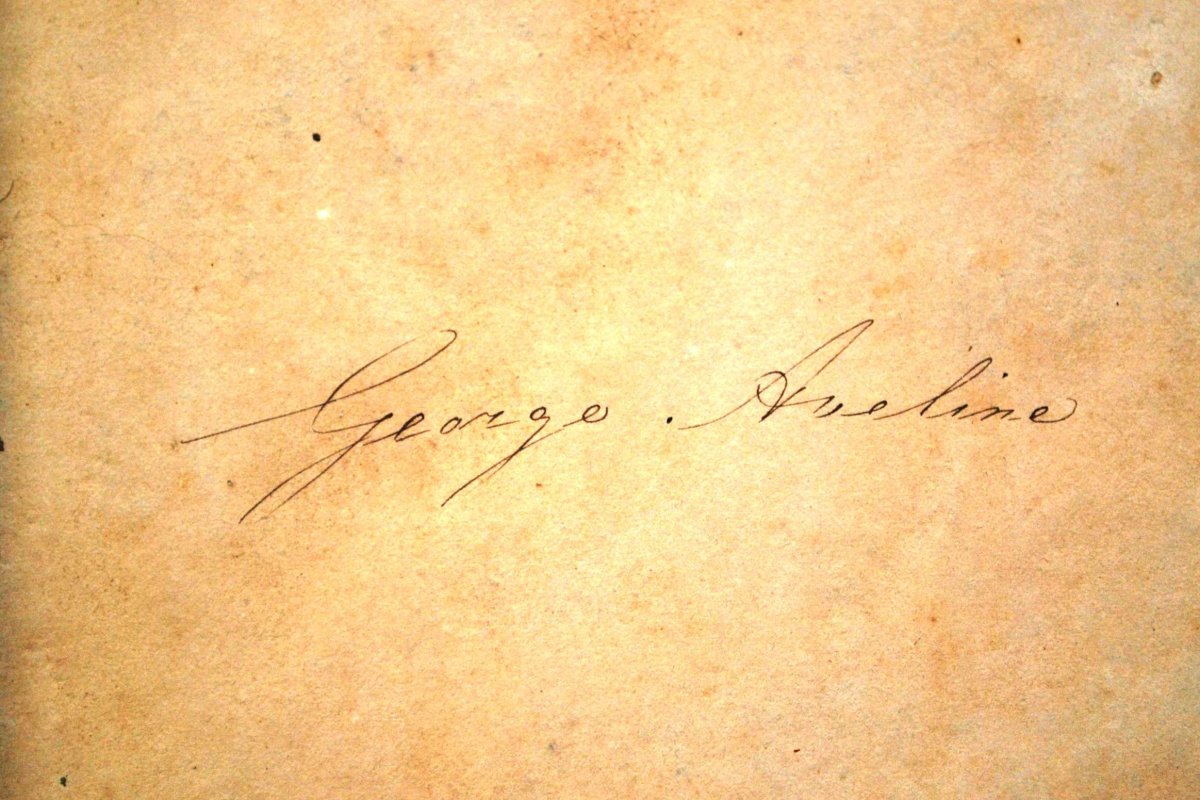 George . Aveline